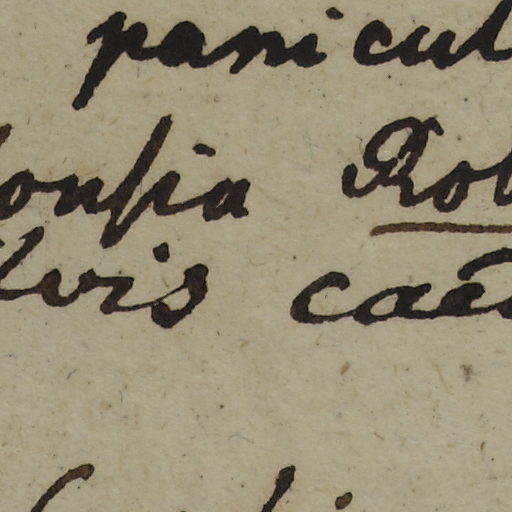 panicul
onsia Rob
lvis cae